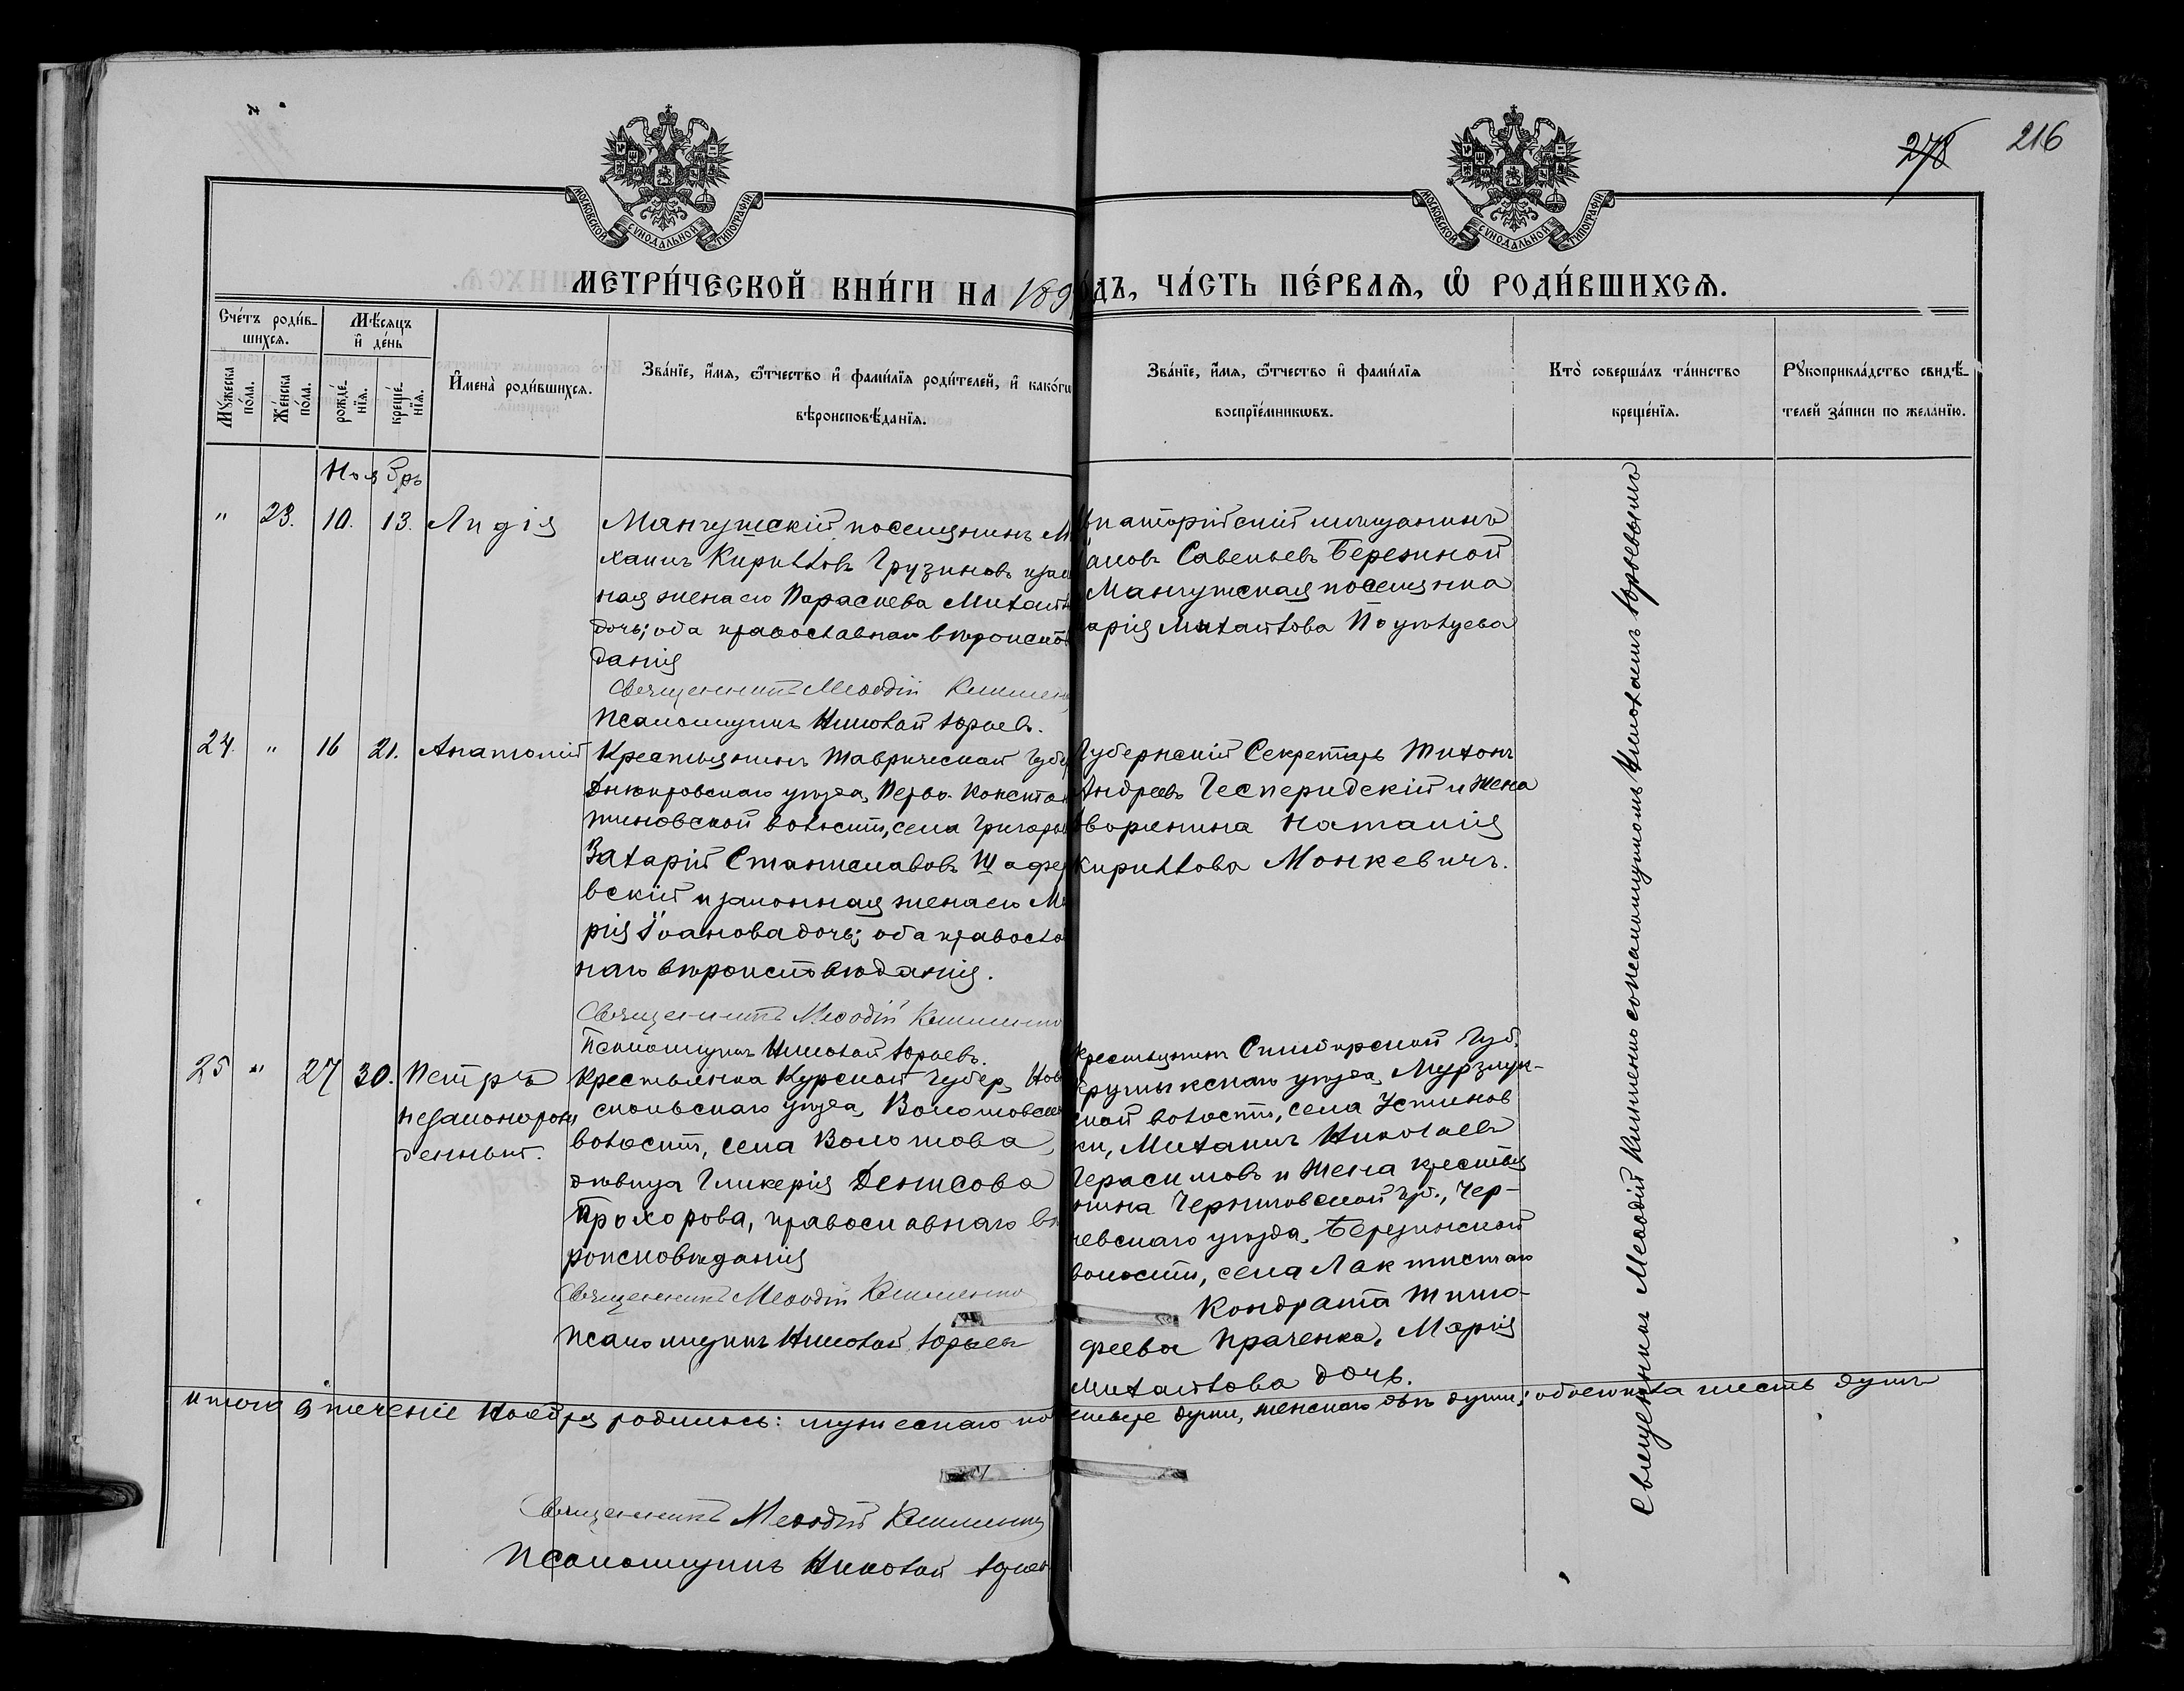 278 216
МОСКОВСКОЙ СУНОДАЛЬНОЙ ТИПОГРАФІИ.
МОСКОВСКОЙ СУНОДАЛЬНОЙ ТИПОГРАФІИ.
МЕТРИ́ЧЕСКОЙ КНИ́ГИ НА 189 ОДЪ, ЧА́СТЬ ПЕ́РВАѦ, Ѡ РОДИ́ВШИХСѦ.
Сче́тъ роди́в-
шихсѧ.
Мѣ́сяцъ
и҆ де́нь
Мꙋ́жеска
по́ла.
Же́нска
по́ла.
рожде́-
нїѧ.
креще́-
нїѧ.
И҆мена̀ роди́вшихсѧ.
Зва́нїе, и҆́мѧ, ѻ҆́тчество и҆ фами́лїѧ роди́телей, и҆ како́гѡ
вѣроисповѣ́данїѧ.
Зва́нїе, и҆́мѧ, ѻ҆́тчество и҆ фами́лїѧ
воспрїе́мникѡвъ.
Кто̀ соверша́лъ та́инство
креще́нїѧ.
Рꙋкоприкла́дство свидѣ́-
телей за́писи по жела́нїю.
Ноябрь
" 23. 10. 13. Лидія
Мангушскій поселянинъ Ми
хаилъ Кириллов Грузиновъ и закон
ная жена его Параскева Михаил
дочь; оба православнаго вѣроиспов
данія
Священникъ Меѳодій Клименко
Псаломщикъ Николай Юрьевъ.
впаторійскій мѣщанинъ
аковъ Савельевъ Бережной
Мангушская поселянка
арія Михайлова Полуэктова
24. " 16 21. Анатолій
Крестьянинъ Таврической губер
Днѣпровскаго уѣзда, Перво-Констан
тиновской волости, села Григорьев
Захарій Станиславовъ Шафер
вскій и законная жена его Ма
рія Іоанова дочь; оба правосла
наго вѣроисповѣданія.
Священникъ Меѳодій Клименко
Псаломщикъ Николай Юрьевъ.
Губернскій Секретарь Тихонъ
Андреевъ Гесперидскій и жена
дворянина Наталія
Кириллова Монкевичъ.
25 " 27 30. Петръ
незаконорож
денный.
Крестьянка Курской губер, Ново
скольскаго уѣзда, Волотовской
волости, села Волотова,
дѣвица Гликерія Денисова
Прохорова, православнаго вѣ
роисповѣданія
Священникъ Меѳодій Клименко
Псаломщикъ Николай Юрьевъ
Крестьянинъ Симбирской Губ.
уѣзда, Мурзиц-
кой волости, села Устинов
ки, Михаилъ Николаевъ
Герасимовъ и жена крестья
нина Черниговской губ., Чер-
невскаго уѣзда, Березинской
волости, села
Кондрата Тимо-
феева Праченка, Марія
Михайлова дочь.
Священникъ Меѳодій Клименко со псаломщикомъ Николаемъ Юрьевымъ
Итого въ теченіе Ноября родилось: мужескаго по четыре души, женскаго двѣ души; обоего пола шесть душъ
Священникъ Меѳодій Клименко
Псаломщикъ Николай Юрьев